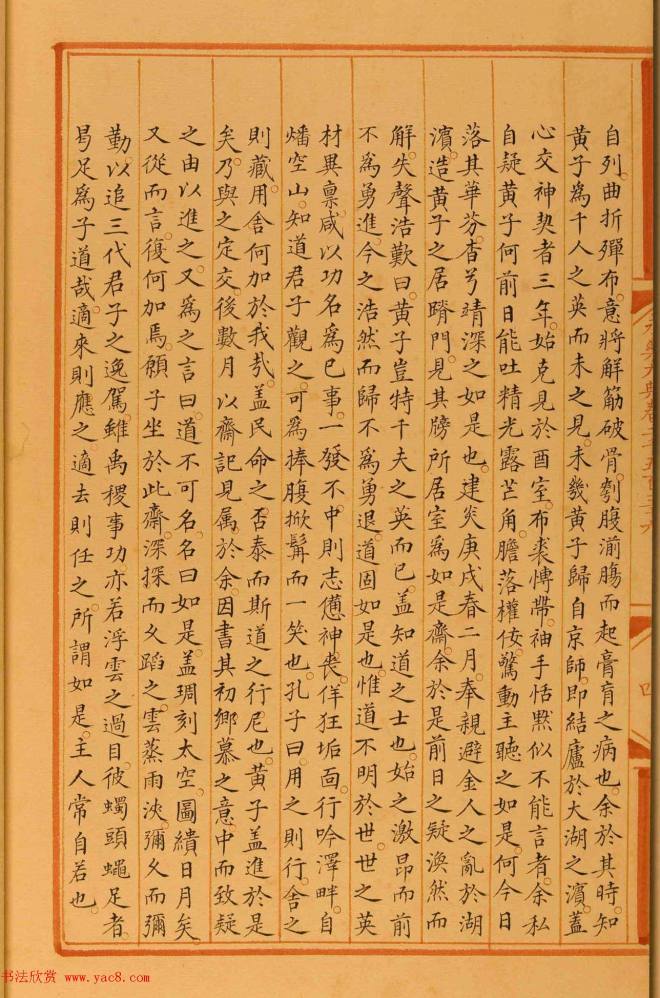 永樂大典卷二千五百三十六
四
自列曲折殫布意將解筋破骨刳腹湔腸而起膏肓之病也余於其時知
黃子為千人之英而未之見未幾黃子歸自京師即結廬於大湖之濱蓋
心交神契者三年始克見於酉室布裘慱帶袖手恬默似不能言者余私
自疑黃子何前日能吐精光露芒角膽落權倖驚動主聽之如是何今日
落其華芬杳兮靖深之如是也建炎庚戌春二月奉親避金人之亂於湖
濱造黃子之居躋門見其牓所居室為如是齋余於是前日之疑渙然而
解失聲浩歎曰黃子豈特千夫之英而已蓋知道之士也始之激昂而前
不為勇進今之浩然而歸不為勇退道固如是也惟道不明於世世之英
材異稟咸以功名為已事一發不中則志憊神喪佯狂垢面行吟澤畔自
燔空山知道君子觀之可為捧腹掀髯而一笑也孔子曰用之則行舍之
則藏用舍何加於我哉蓋民命之否泰而斯道之行尼也黃子蓋進於是
矣乃與之定交後數月以齋記見属於余因書其初鄉慕之意中而致疑
之由以進之又為之言曰道不可名名曰如是蓋琱刻太空圖繢日月矣
又從而言復何加焉願子坐於此齋深探而久蹈之雲蒸雨浹彌久而彌
勤以追三代君子之逸駕雖禹稷事功亦若浮雲之過目彼蠋頭蠅足者
曷足為子道哉適來則應之適去則任之所謂如是主人常自若也
书法欣赏 www.yac8.com